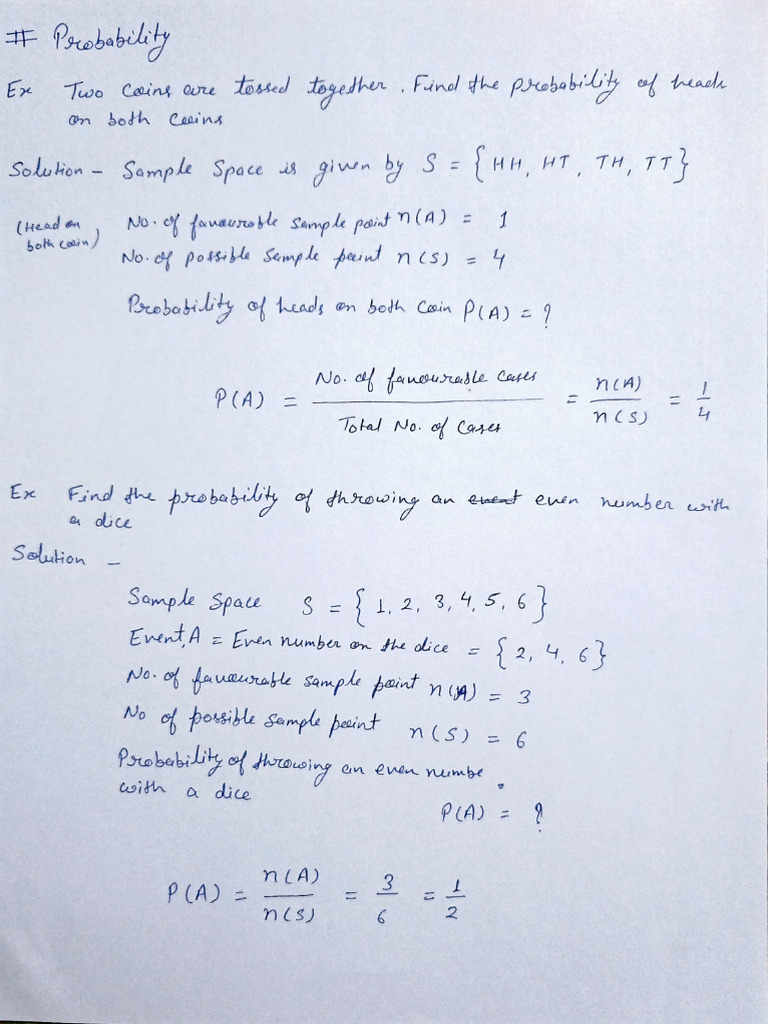 # Probability
Ex Two coins are tossed together. Find the probability of heads
on both coins
Solution - Sample Space is given by S = { HH, HT, TH, TT}
(Head on both coin) No. of favourable sample point n(A) = 1
No. of possible sample point n(S) = 4
Probability of heads on both coin P(A) = ?
P(A) = No. of favourable cases / Total No. of cases = n(A) / n(S) = 1/4
Ex Find the probability of throwing an event even number with
a dice
Solution -
Sample space S = { 1, 2, 3, 4, 5, 6}
Event, A = Even number on the dice = { 2, 4, 6}
No. of favourable sample point n(A) = 3
No of possible sample point n(S) = 6
Probability of throwing an even numbe
with a dice
P(A) = ?
P(A) = n(A) / n(S) = 3/6 = 1/2